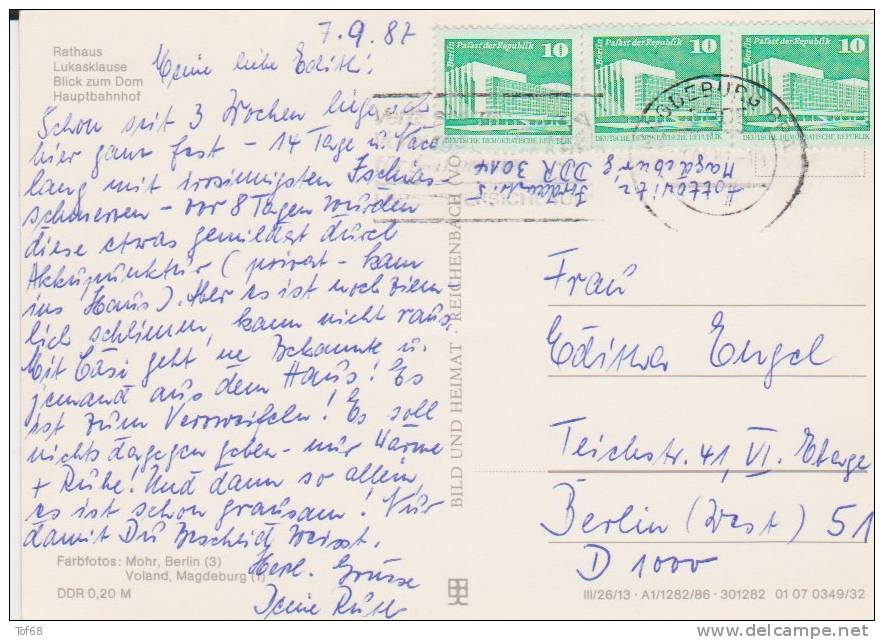 7.9.87
Rathaus
Lukasklause
Blick zum Dom
Hauptbahnhof
Meine liebe Edith!
Schon seit 3 Wochen liege ich
hier ganz fest - 14 Tage u. Nächte
lang mit irrsinnigen Ischias-
schmerzen - vor 8 Tagen wurden
diese etwas gemildert durch
Akkupunktur (privat - kam
ins Haus). Aber es ist noch ziem-
lich schlimm, kann nicht raus,
Mit Cäsi geht 'ne Bekannte u.
jemand aus dem Haus! Es
ist zum Verzweifeln! Es soll
nichts dagegen geben - nur Wärme
+ Ruhe! Und dann so allein,
es ist schon grausam! Nur
damit Du Bescheid weisst.
Herzl. Grüsse
Deine Ruth
Farbfotos: Mohr, Berlin (3)
Voland, Magdeburg (1)
DDR 0,20 M
BILD UND HEIMAT · REICHENBACH (VO
Berlin Palast der Republik 10
DEUTSCHE DEMOKRATISCHE REPUBLIK
Berlin Palast der Republik 10
DEUTSCHE DEMOKRATISCHE REPUBLIK
Berlin Palast der Republik 10
DEUTSCHE DEMOKRATISCHE REPUBLIK
Magdeburg DDR 3014
Frau
Editha Engel
Teichstr. 41, VI. Etage
Berlin (West) 51
D 1000
III/26/13 · A1/1282/86 · 301282 01 07 0349/32
Tof68
delcampe.net